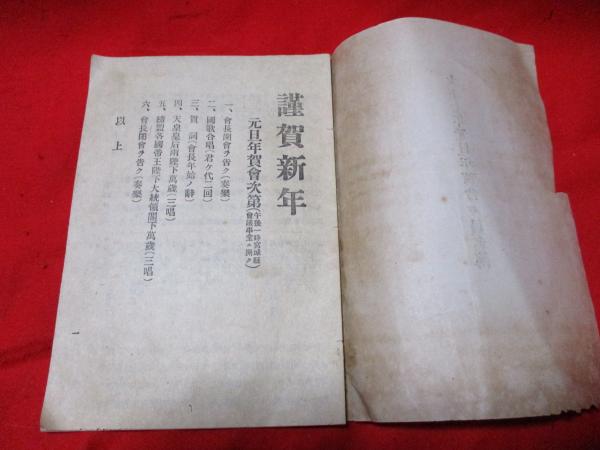 謹賀新年
元旦年賀會次第(午後一時宮城縣會議事堂ニ開ク)
一、會長開會ヲ告ク(奏樂)
二、國歌合唱(君ケ代二回)
三、賀詞(會長年始ノ辭)
四、天皇皇后兩陛下萬歲(三唱)
五、締盟各國帝王陛下大統領閣下萬歲(三唱)
六、會長閉會ヲ告ク(奏樂)
以上
一